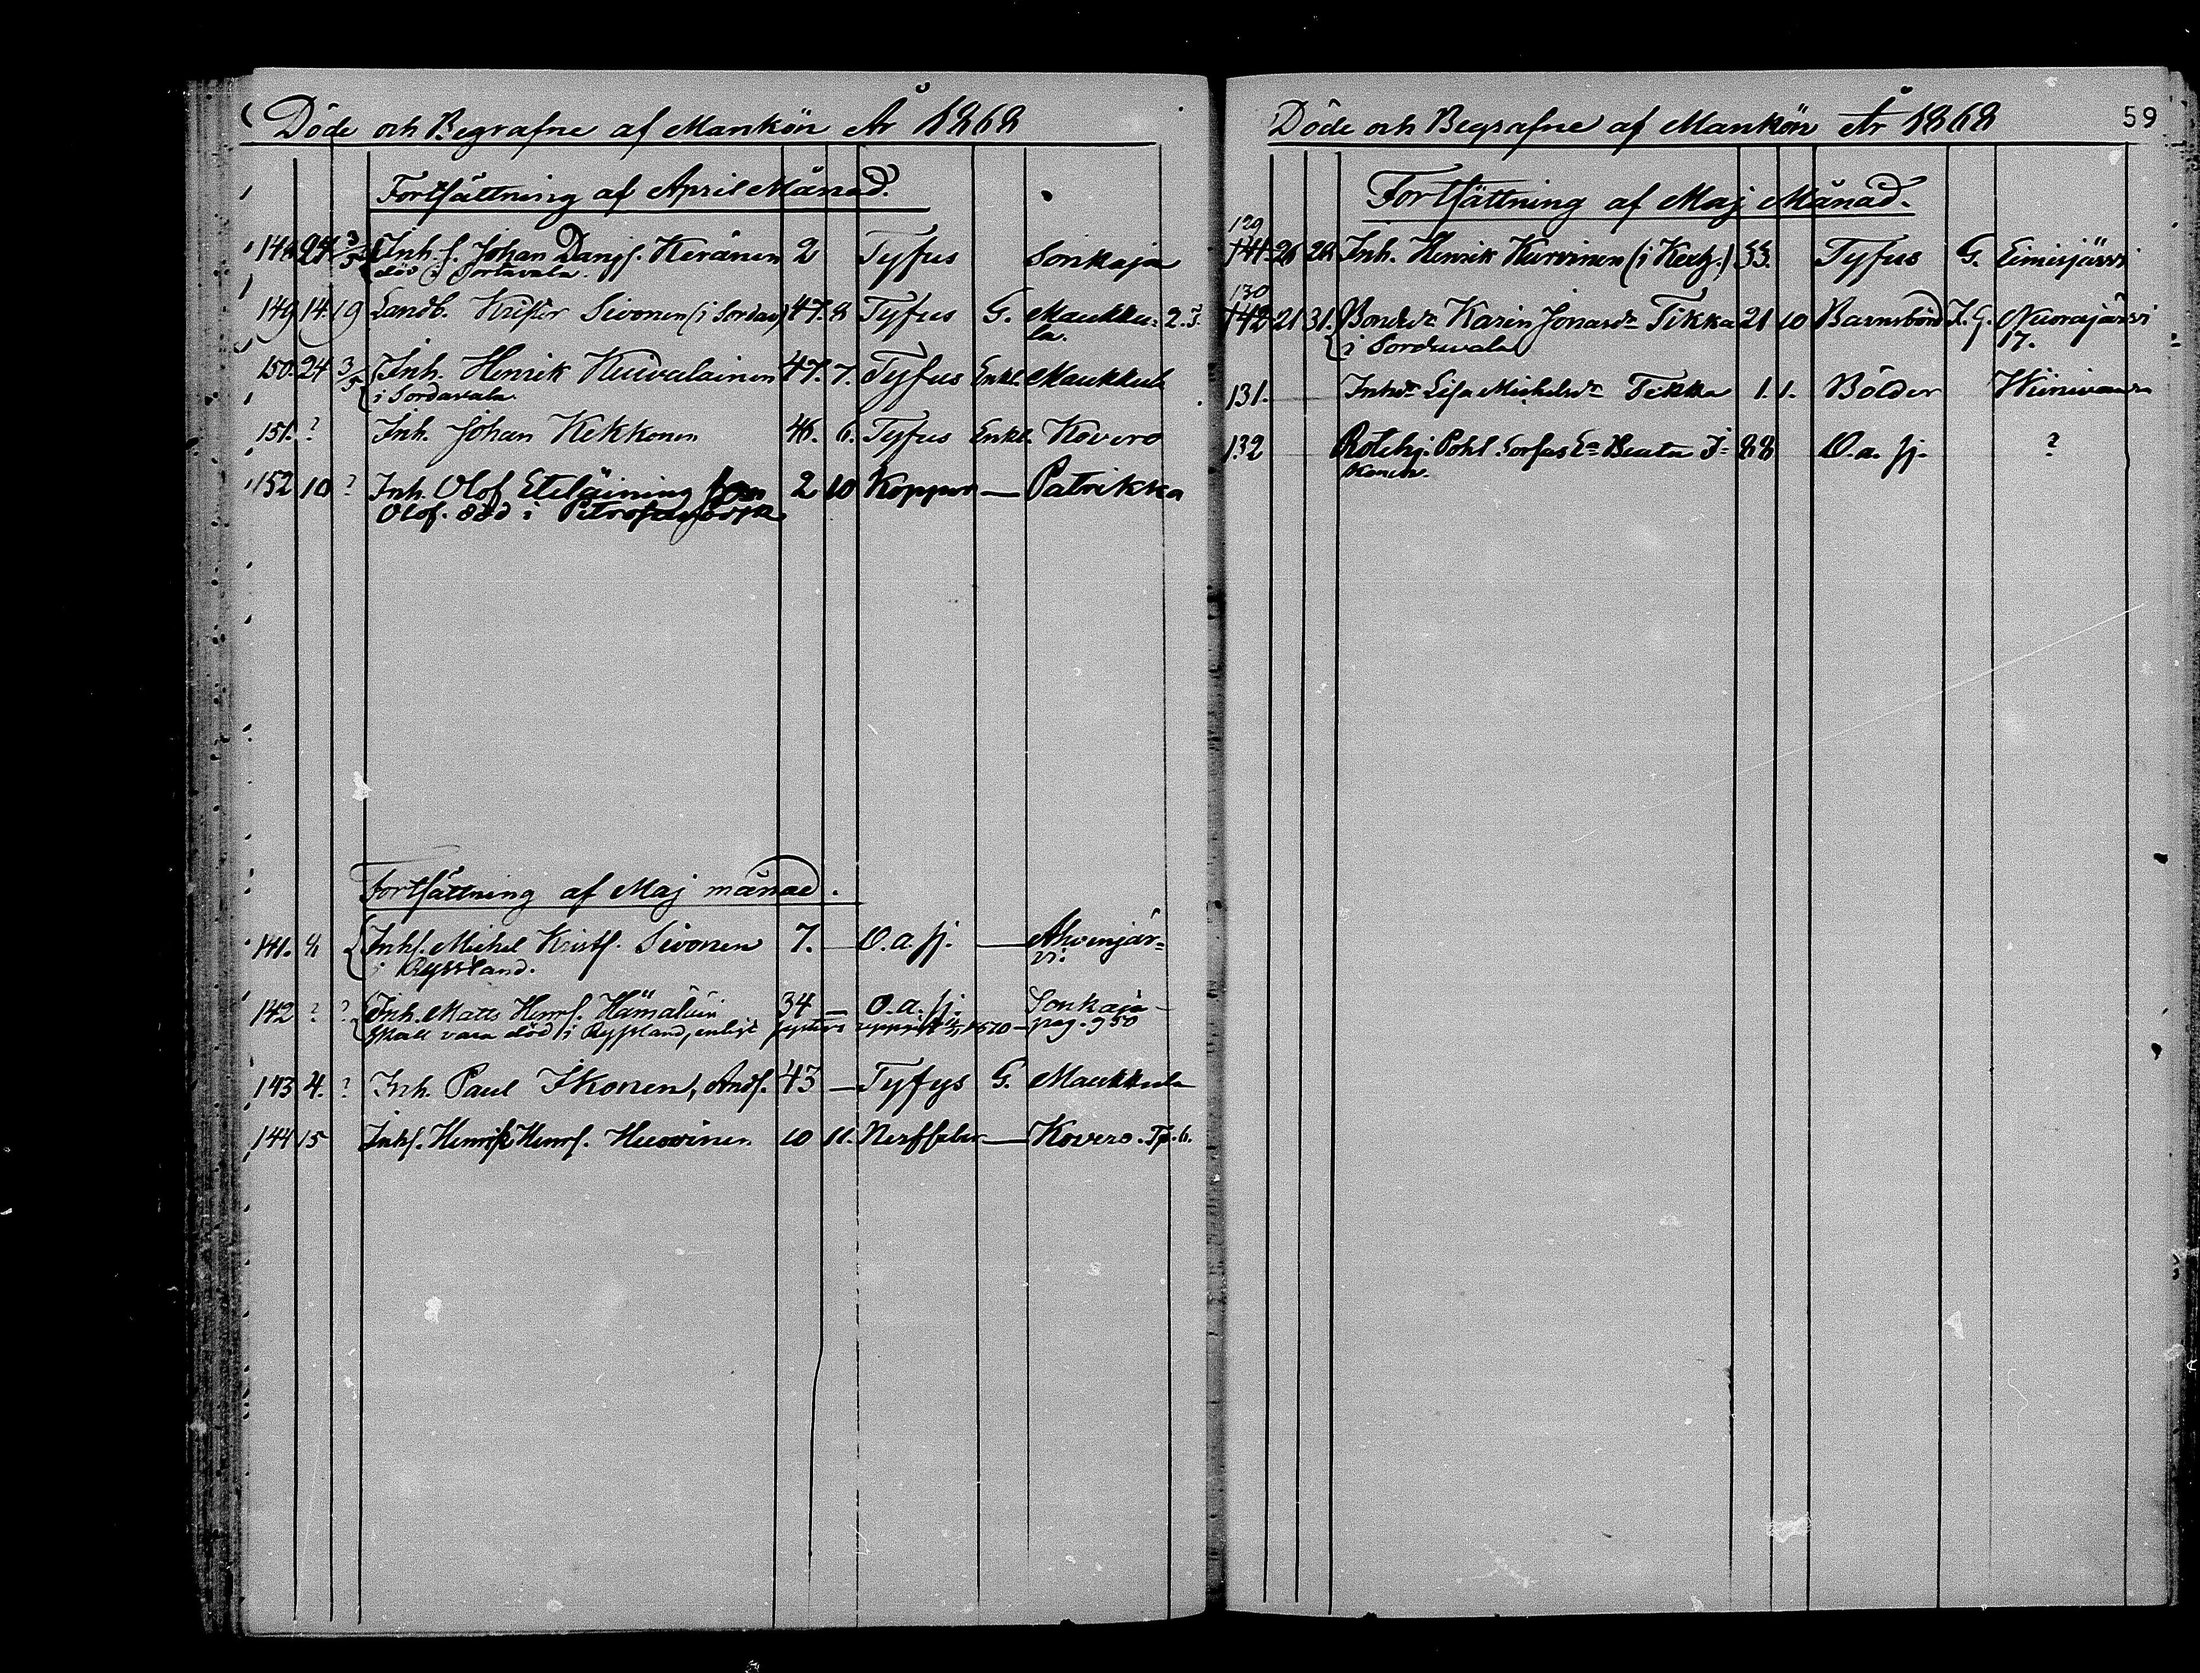 Döde och Begrafne af Mankön År 1868
Fortsättning af April Månad.
148 24 3/5 Inh. s. Johan Danss. Keränen 2 Tyfus Sonkaja
död i Sordavala.
149 14 19 Landb. Krister Sivonen (i Sordav) 47. 8 Tyfus G. Maukku- 2. J.
la.
150. 24 3/5 Inh. Henrik Kuivalainen 47. 7. Tyfus Enkl. Maukkula
i Sordavala
151. ? Inh. Johan Kekkonen 46. 6. Tyfus Enkl. Kovero
152 10 ? Inh. Olof Eteläining son 2 10 Koppor — Patrikka
Olof. död i
Fortsättning af Maj månad.
141. 8 Inhs. Michel Krists. Sivonen 7. — O.a.sj. — Ahvenjär-
i Ryssland. vi.
142 ? ? Inh. Matts Henrs. Hämaläin 34 — O.a.sj. Sonkaja
skall vara död i Ryssland, enligt — pag. 950
143 4. ? Inh. Paul Ikonen, Ands. 43 — Tyfys G. Maukkula
144 15 Inhs. Henrik Henrs. Huovinen 10 11. Nerffeber — Kovero. Tp. 6.
Döde och Begrafne af Mankön År 1868 59
Fortsättning af Maj Månad.
129
141 26 28 Inh. Henrik Kurvinen (i Kexh.) 33. Tyfus G. Eimisjärvi
130
142 21 31. Bondedr Karin Jonasdr Tikka 21 10 Barnsbörd J. G. Nuorajärvi
i Sordavala 17.
131. Inhdr Lisa Michelsdr Tikka 1. 1. Bölder Hünivaara
132 Rotehj. Pohl Sorfas Ea Beata J- 88 O.a.sj. ?